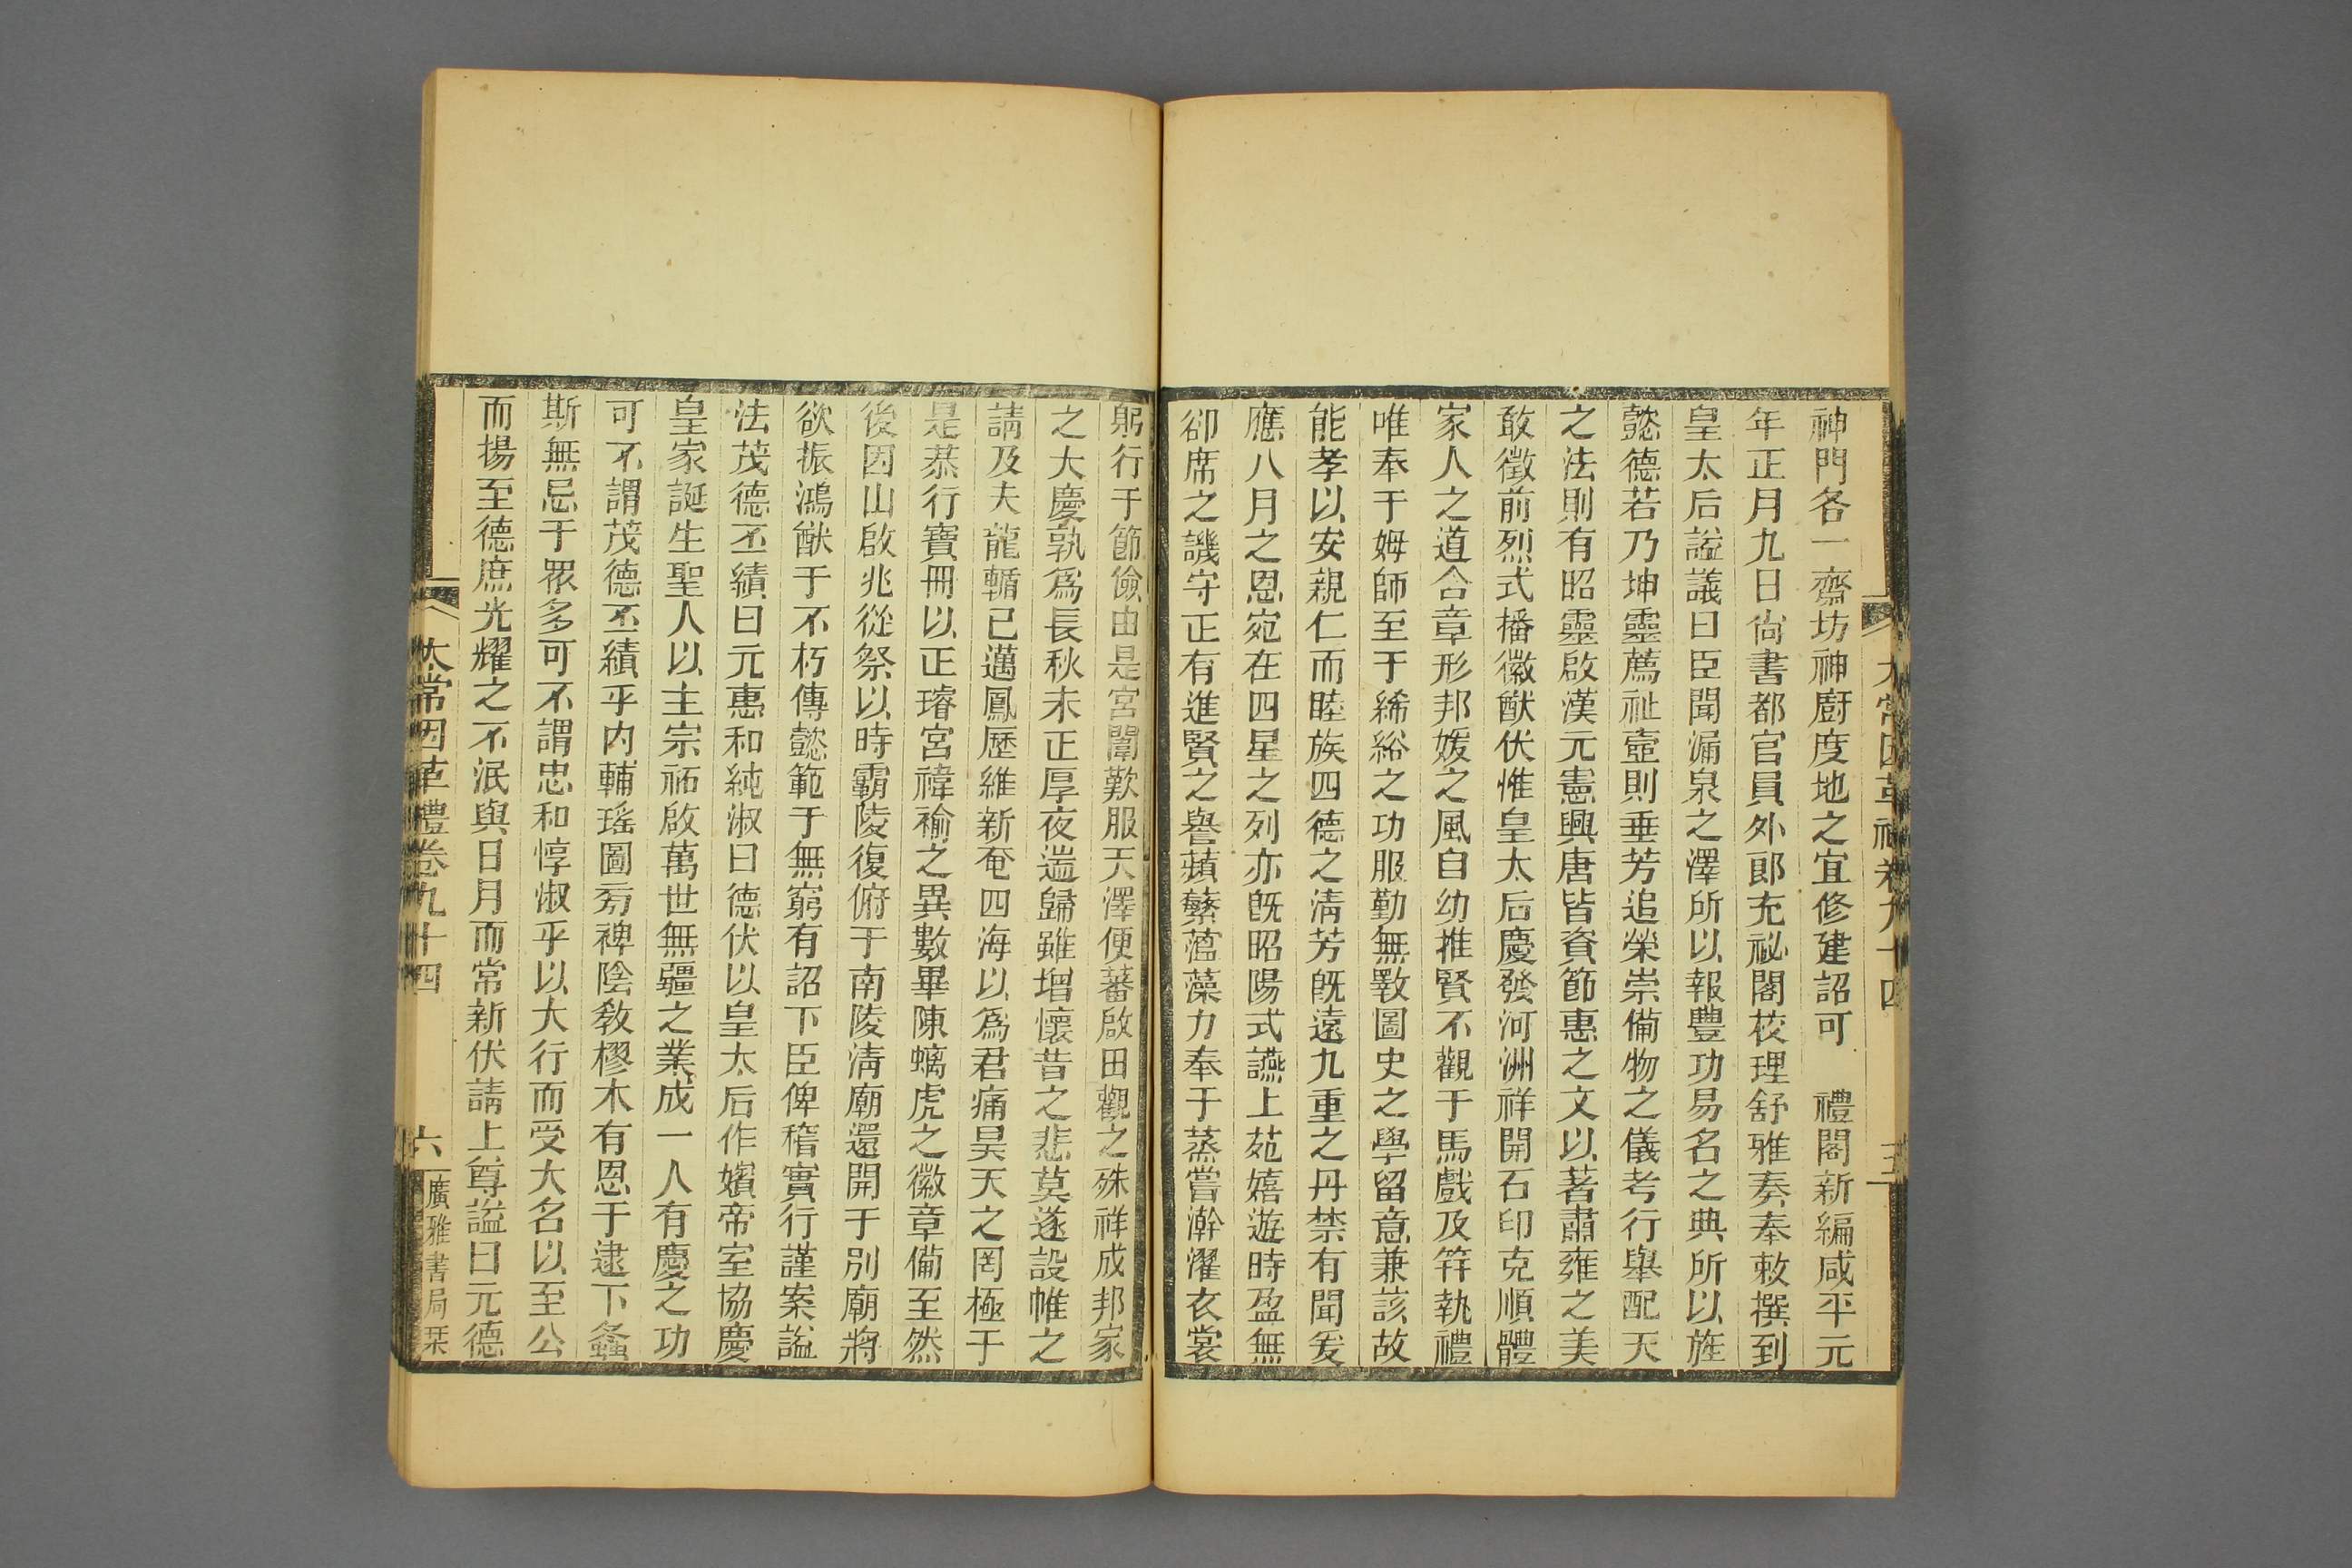 神門各一齋坊神廚度地之宜修建詔可　禮閣新編咸平元
年正月九日尙書都官員外郎充祕閣校理舒雅奏奉敕撰到
皇太后謚議曰臣聞漏泉之澤所以報豐功易名之典所以旌
懿德若乃坤靈薦祉壼則垂芳追榮崇備物之儀考行舉配天
之法則有昭靈啟漢元憲興唐皆資節惠之文以著肅雍之美
敢徵前烈式播徽猷伏惟皇太后慶發河洲祥開石印克順體
家人之道合章形邦媛之風自幼推賢不觀于馬戲及笄執禮
唯奉于姆師至于絺綌之功服勤無斁圖史之學留意兼該故
能孝以安親仁而睦族四德之淸芳旣遠九重之丹禁有聞爰
應八月之恩宛在四星之列亦旣昭陽式讌上苑嬉遊時盈無
卻席之譏守正有進賢之譽蘋蘩薀藻力奉于蒸嘗澣濯衣裳
躬行于節儉由是宮闈歎服天澤便蕃啟田觀之殊祥成邦家
之大慶孰爲長秋未正厚夜遄歸雖增懷昔之悲莫遂設帷之
請及夫龍輴已邁鳳歷維新奄四海以爲君痛昊天之罔極于
是恭行寶冊以正璿宮褘褕之異數畢陳螭虎之徽章備至然
後因山啟兆從祭以時霸陵復俯于南陵淸廟還開于別廟將
欲振鴻猷于不朽傳懿範于無窮有詔下臣俾稽實行謹案謚
法茂德丕績曰元惠和純淑曰德伏以皇太后作嬪帝室協慶
皇家誕生聖人以主宗祏啟萬世無疆之業成一人有慶之功
可不謂茂德丕績乎內輔瑤圖旁裨陰敎樛木有恩于逮下螽
斯無忌于眾多可不謂忠和惇淑乎以大行而受大名以至公
而揚至德庶光耀之不泯與日月而常新伏請上尊謚曰元德
太常因革禮卷九十四
六
廣雅書局栞